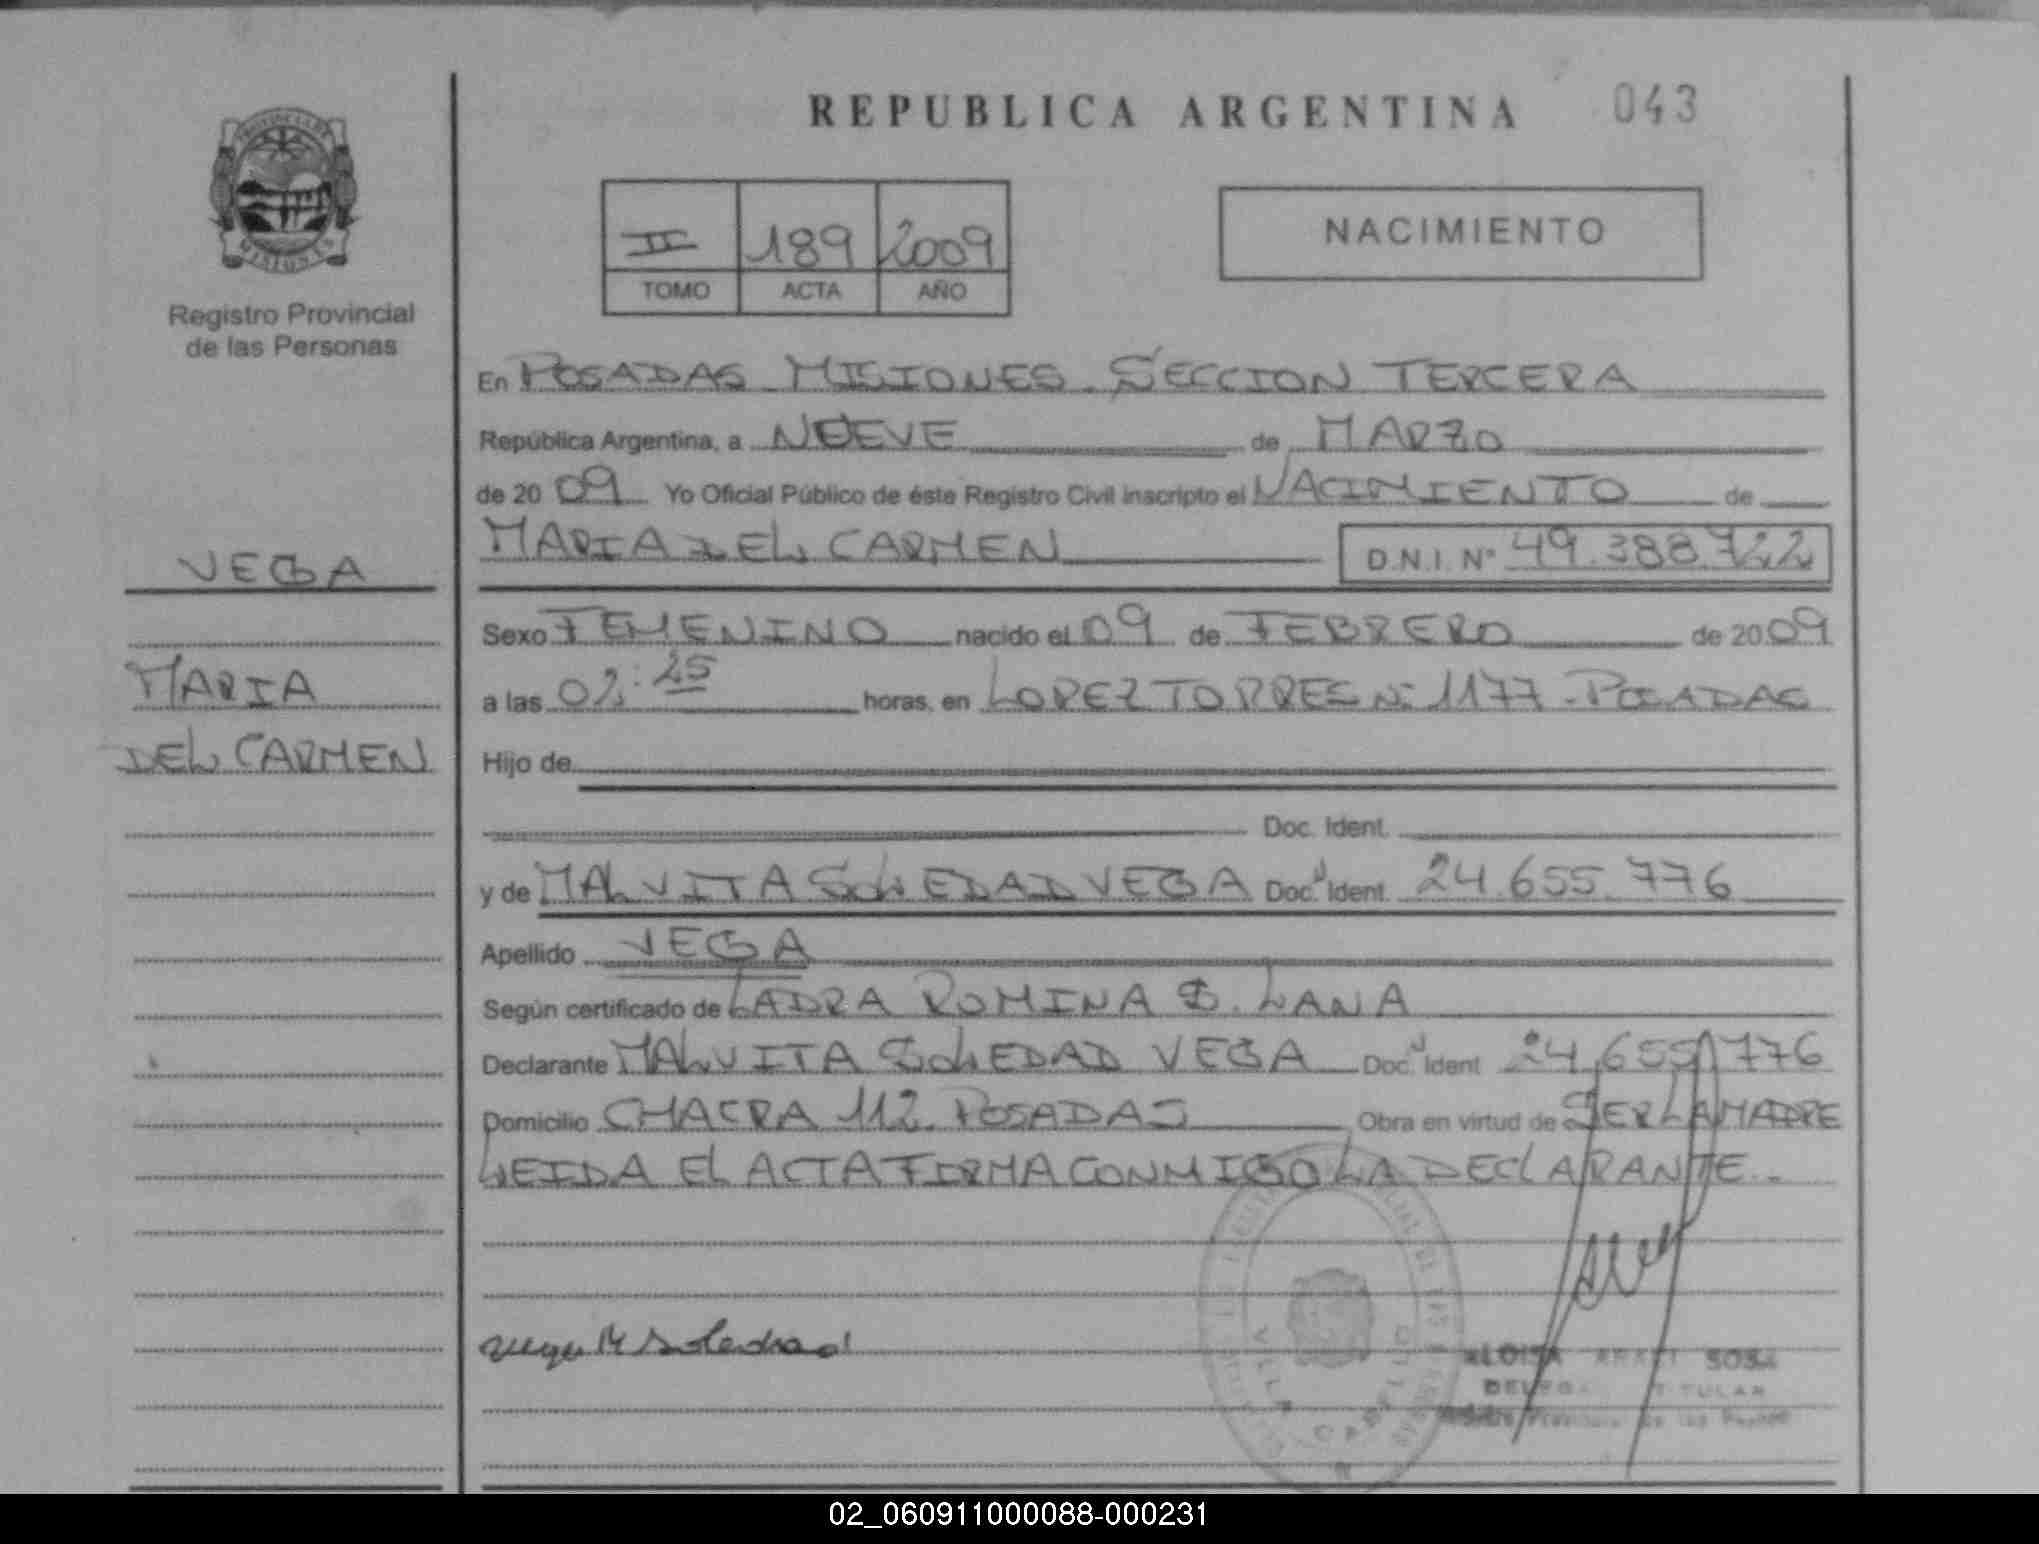 REPUBLICA ARGENTINA 043
PROVINCIA DE
MISIONES
Registro Provincial
de las Personas
II 189 2009
TOMO ACTA AÑO
NACIMIENTO
En POSADAS MISIONES. SECCION TERCERA
República Argentina, a NUEVE de MARZO
de 20 09 Yo Oficial Público de éste Registro Civil inscripto el NACIMIENTO de
MARIA DEL CARMEN D.N.I. Nº 49.388.722
VEGA
Sexo FEMENINO nacido el 09 de FEBRERO de 20 09
MARIA
a las 02:25 horas, en LOPEZ TORRES Nº 1177 - POSADAS
DEL CARMEN
Hijo de
Doc. Ident.
y de MALVITA SOLEDAD VEGA Doc. Ident. 24.655.776
Apellido VEGA
Según certificado de LADRA ROMINA S. LANA
Declarante MALVITA SOLEDAD VEGA Doc. Ident 24.655.776
Domicilio CHACRA 112. POSADAS Obra en virtud de SER LA MADRE
LEIDA EL ACTA FIRMA CONMIGO LA DECLARANTE.-
Vega M Soledad
VILLA CABELLO
SOSA
DELEGA TITULAR
02_060911000088-000231